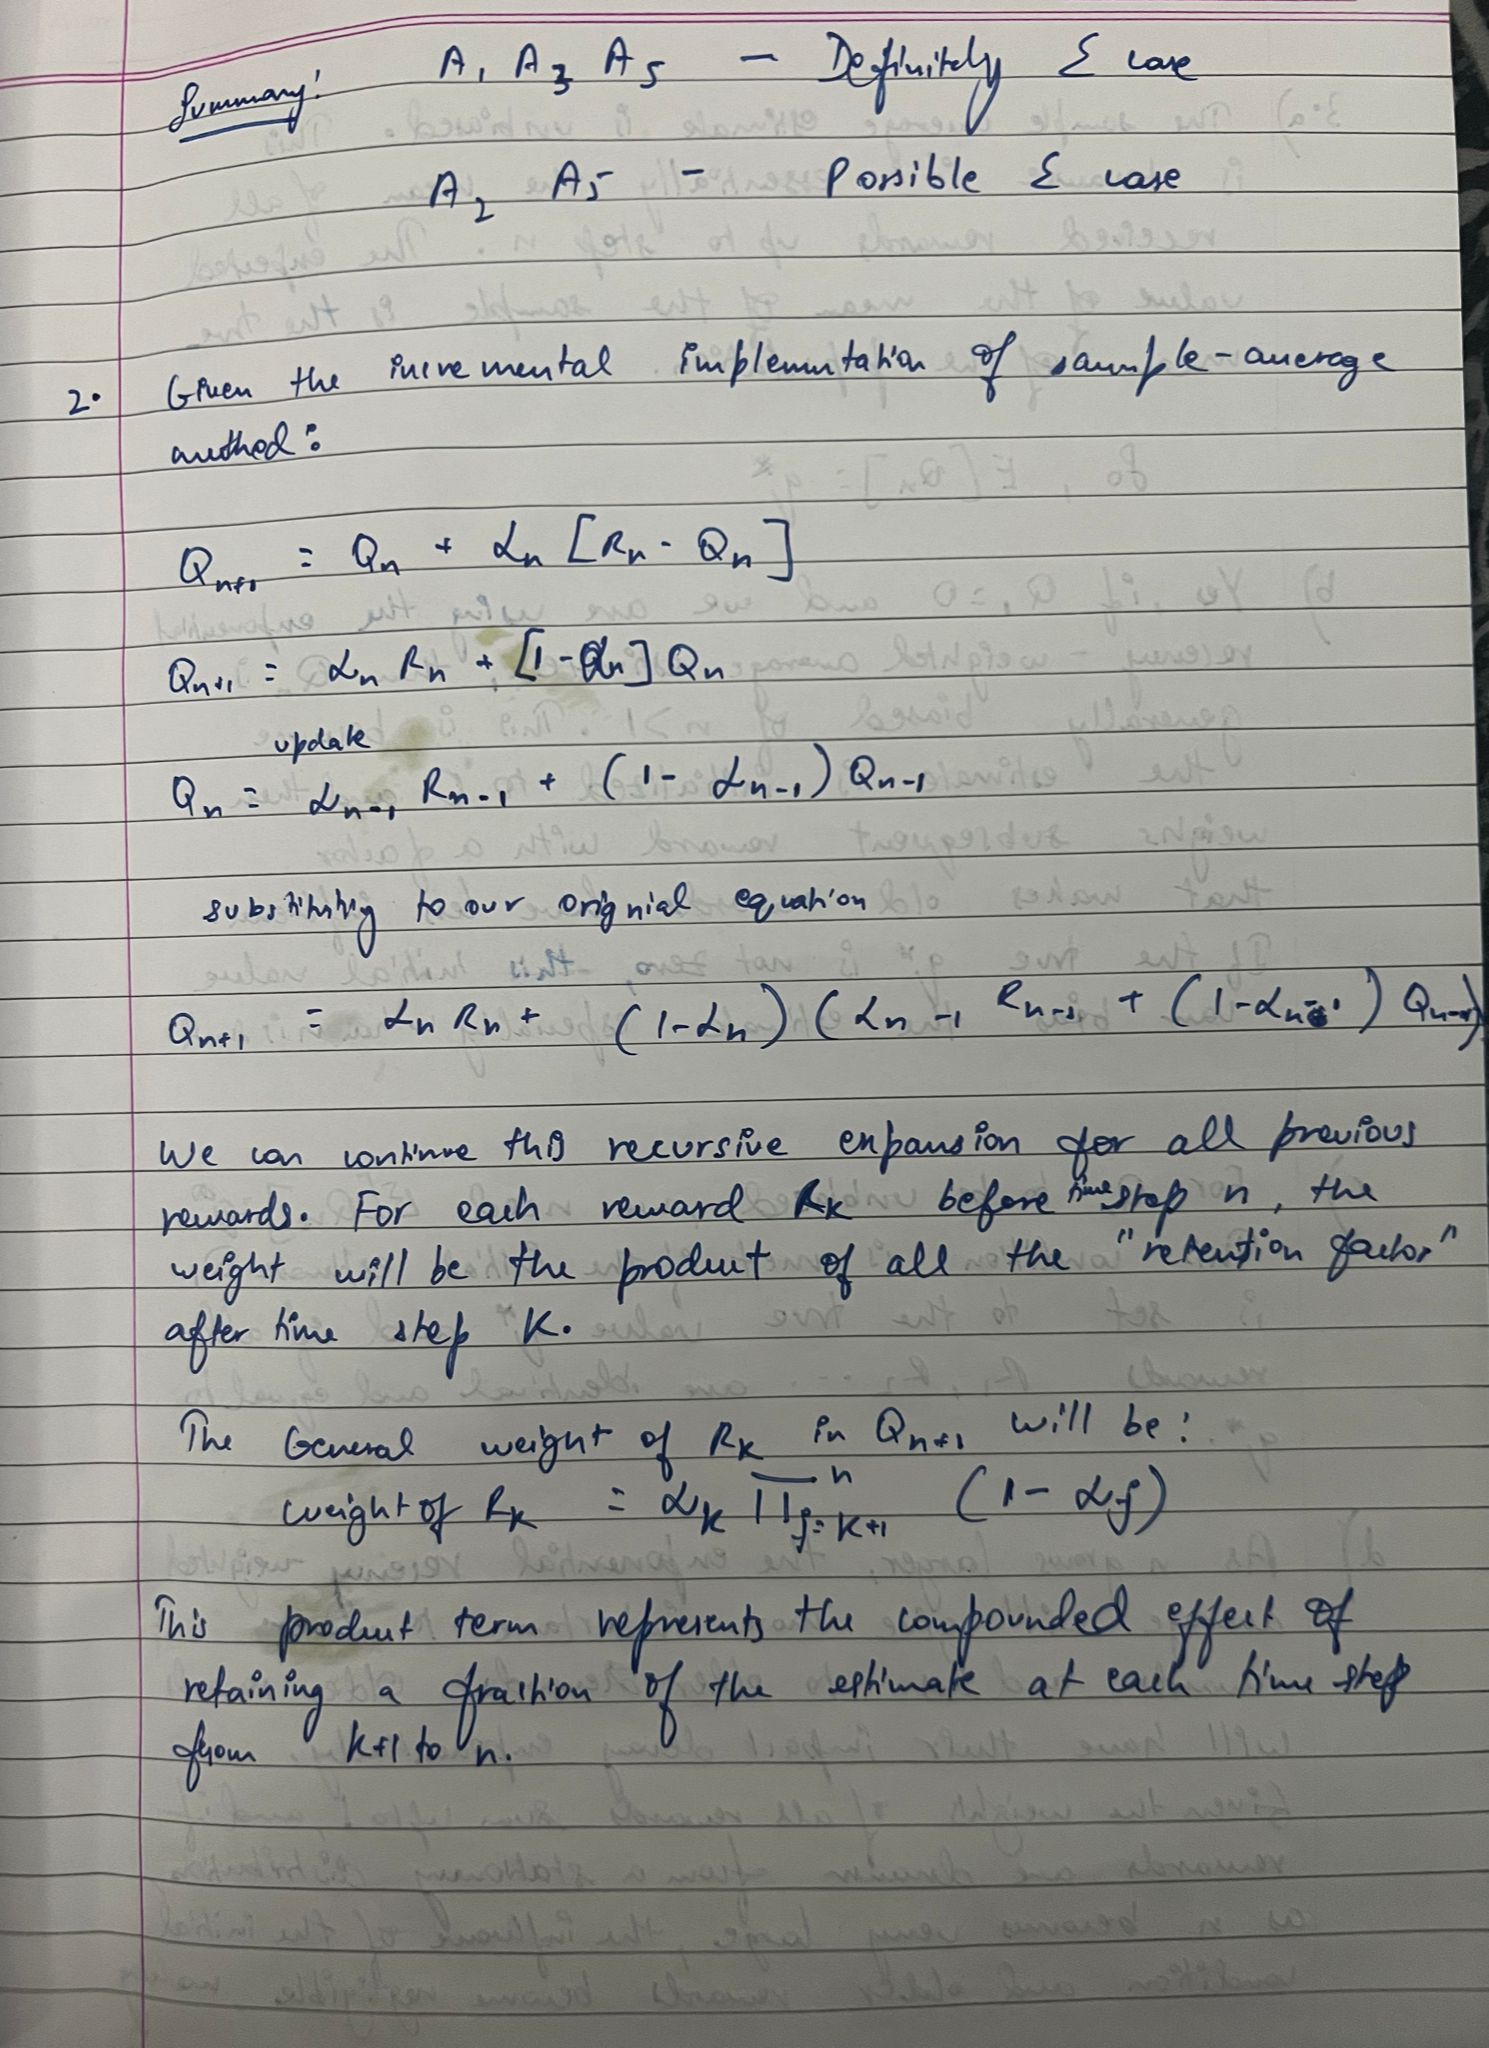 Summary: A₁ A₃ A₅ – Definitely Ɛ case
A₂ A₅ – Possible Ɛ case
2. Given the incremental implementation of sample-average
method:
Qₙ₊₁ = Qₙ + αₙ [Rₙ - Qₙ]
Qₙ₊₁ = αₙ Rₙ + [1-αₙ] Qₙ
update
Qₙ = αₙ₋₁ Rₙ₋₁ + (1- αₙ₋₁) Qₙ₋₁
substituting to our orignial equation
Qₙ₊₁ = αₙ Rₙ + (1-αₙ) (αₙ₋₁ Rₙ₋₁ + (1-αₙ₋₁) Qₙ₋₁)
We can continue this recursive expansion for all previous
rewards. For each reward Rₖ before time step n, the
weight will be the product of all the "retention factor"
after time step K.
The General weight of Rₖ in Qₙ₊₁ will be:
weight of Rₖ = αₖ ∏ⁿⱼ₌ₖ₊₁ (1- αⱼ)
This product term represents the compounded effect of
retaining a fraction of the estimate at each time step
from k+1 to n.